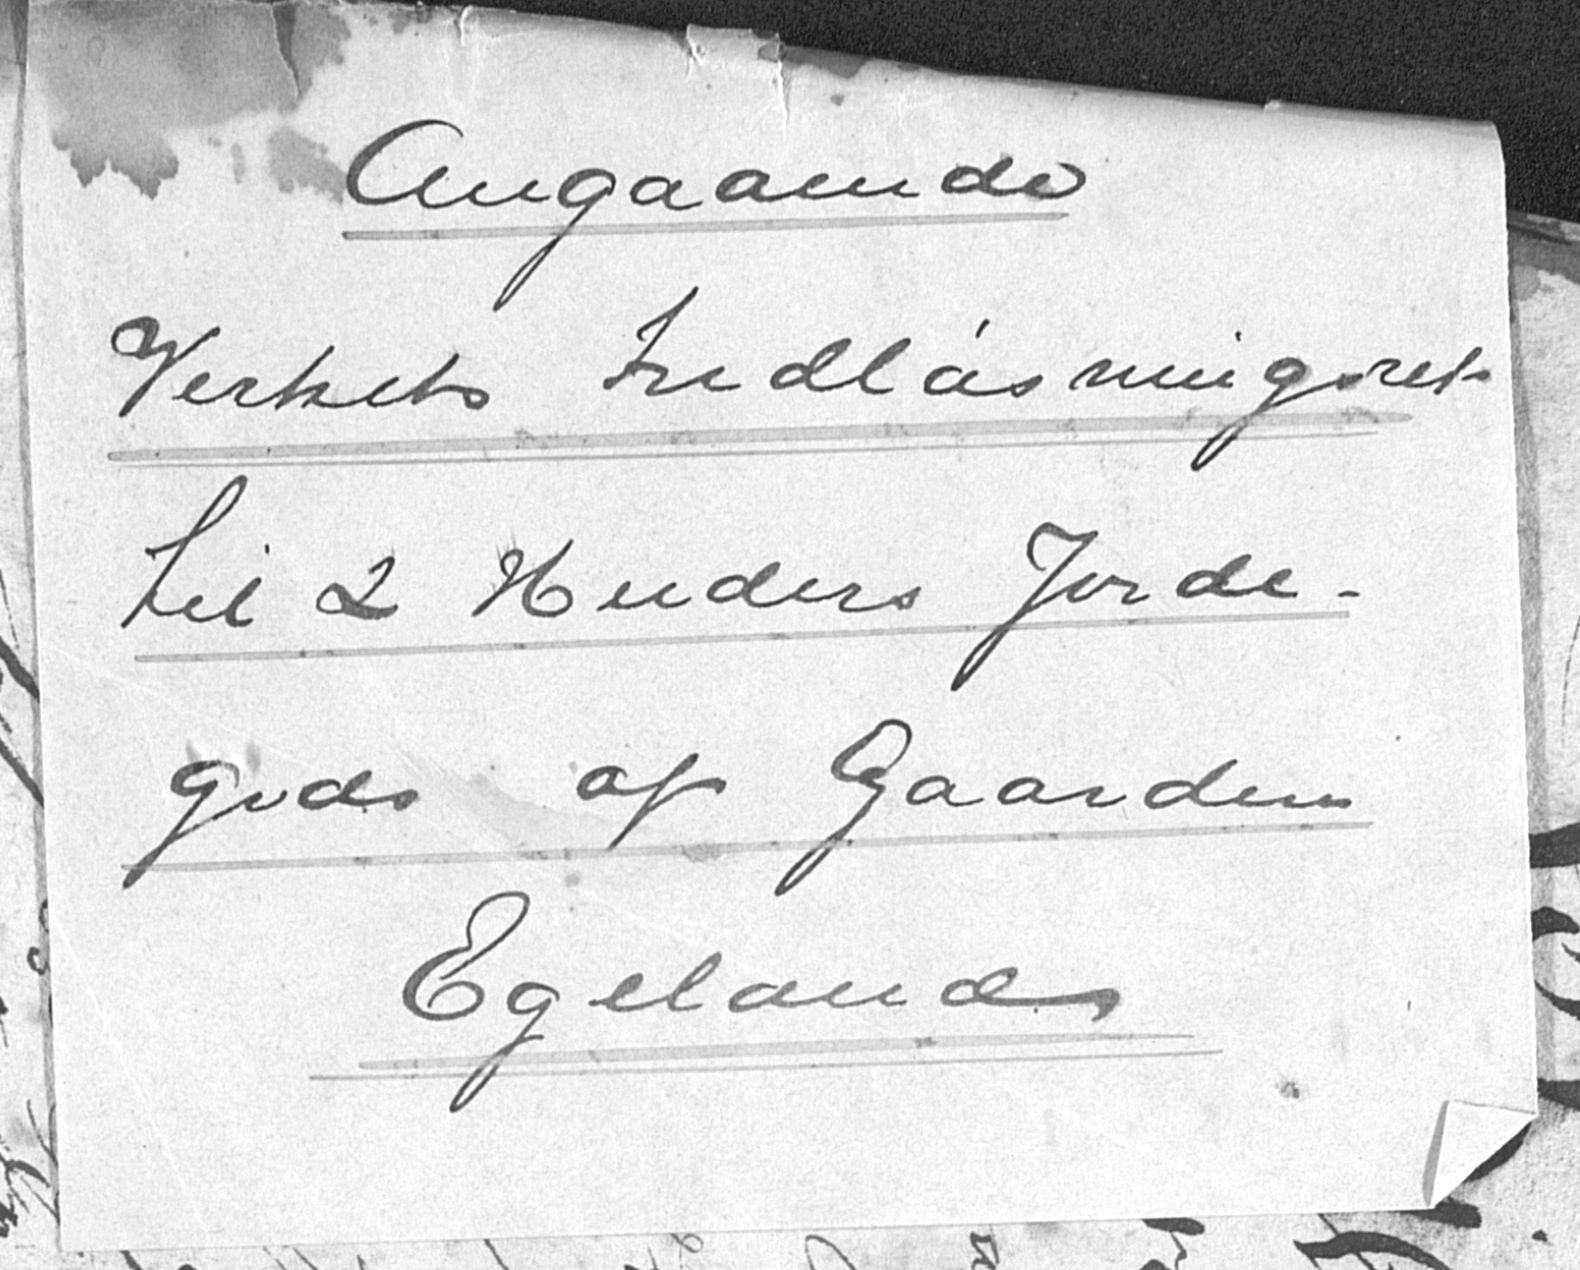 Angaaende
Verkets Indløsningsret
til 2 Huders Jorde-
gods af Gaarden
Egelands